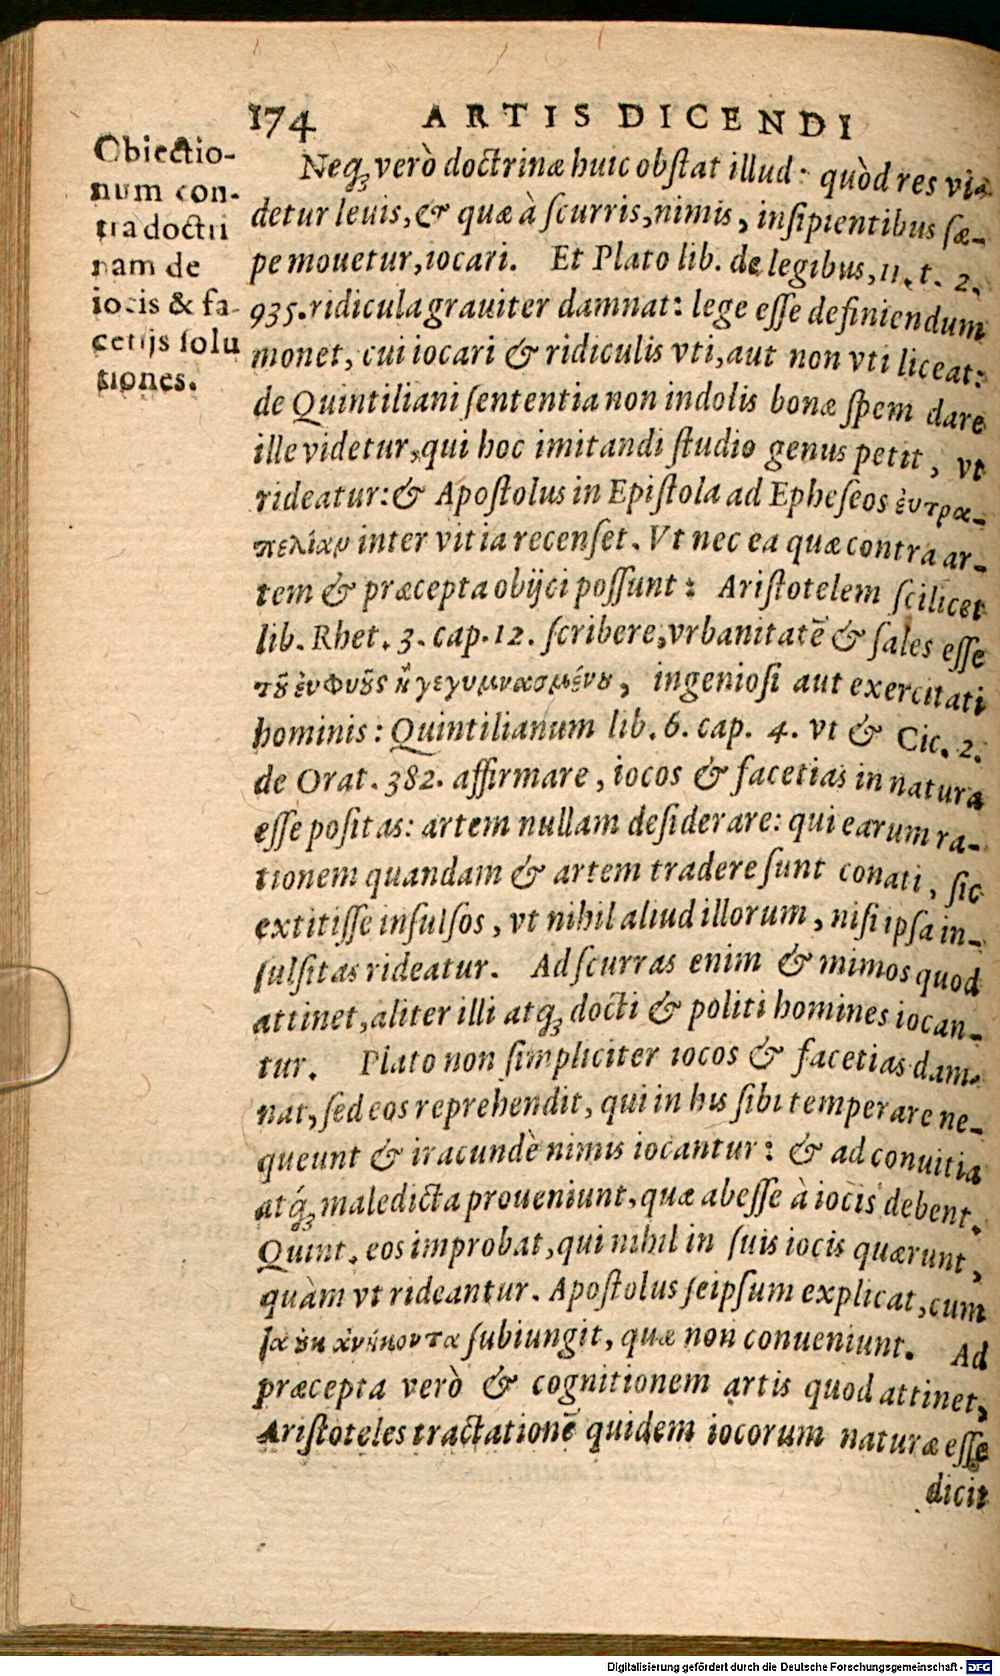 174 ARTIS DICENDI
Obiectio-
num con-
tra doctri
nam de
iocis & fa-
cetijs solu
tiones.
Neq; verò doctrinæ huic obstat illud: quòd res vi-
detur leuis, & quæ à scurris, nimis, insipientibus sæ-
pe mouetur, iocari. Et Plato lib. de legibus, 11. t. 2.
935. ridicula grauiter damnat: lege esse definiendum
monet, cui iocari & ridiculis vti, aut non vti liceat:
de Quintiliani sententia non indolis bonæ spem dare
ille videtur, qui hoc imitandi studio genus petit, vt
rideatur: & Apostolus in Epistola ad Epheseos ἐυτρα-
πελίαν inter vitia recenset. Vt nec ea quæ contra ar-
tem & præcepta obijci possunt: Aristotelem scilicet
lib. Rhet. 3. cap. 12. scribere, vrbanitatē & sales esse
τȣ͂ ἐυφυȣ͂ς ἢ γεγυμνασμένȣ, ingeniosi aut exercitati
hominis: Quintilianum lib. 6. cap. 4. vt & Cic. 2.
de Orat. 382. affirmare, iocos & facetias in natura
esse positas: artem nullam desiderare: qui earum ra-
tionem quandam & artem tradere sunt conati, sic
extitisse insulsos, vt nihil aliud illorum, nisi ipsa in-
sulsitas rideatur. Ad scurras enim & mimos quod
attinet, aliter illi atq; docti & politi homines iocan-
tur. Plato non simpliciter iocos & facetias dam-
nat, sed eos reprehendit, qui in his sibi temperare ne-
queunt & iracundè nimis iocantur: & ad conuitia
atq́; maledicta proueniunt, quæ abesse à iocis debent.
Quint. eos improbat, qui nihil in suis iocis quærunt,
quàm vt rideantur. Apostolus seipsum explicat, cum
ȣ̓κ ἀνήκοντα subiungit, quæ non conueniunt. Ad
præcepta verò & cognitionem artis quod attinet,
Aristoteles tractationē quidem iocorum naturæ esse
dicit
Digitalisierung gefördert durch die Deutsche Forschungsgemeinschaft - DFG